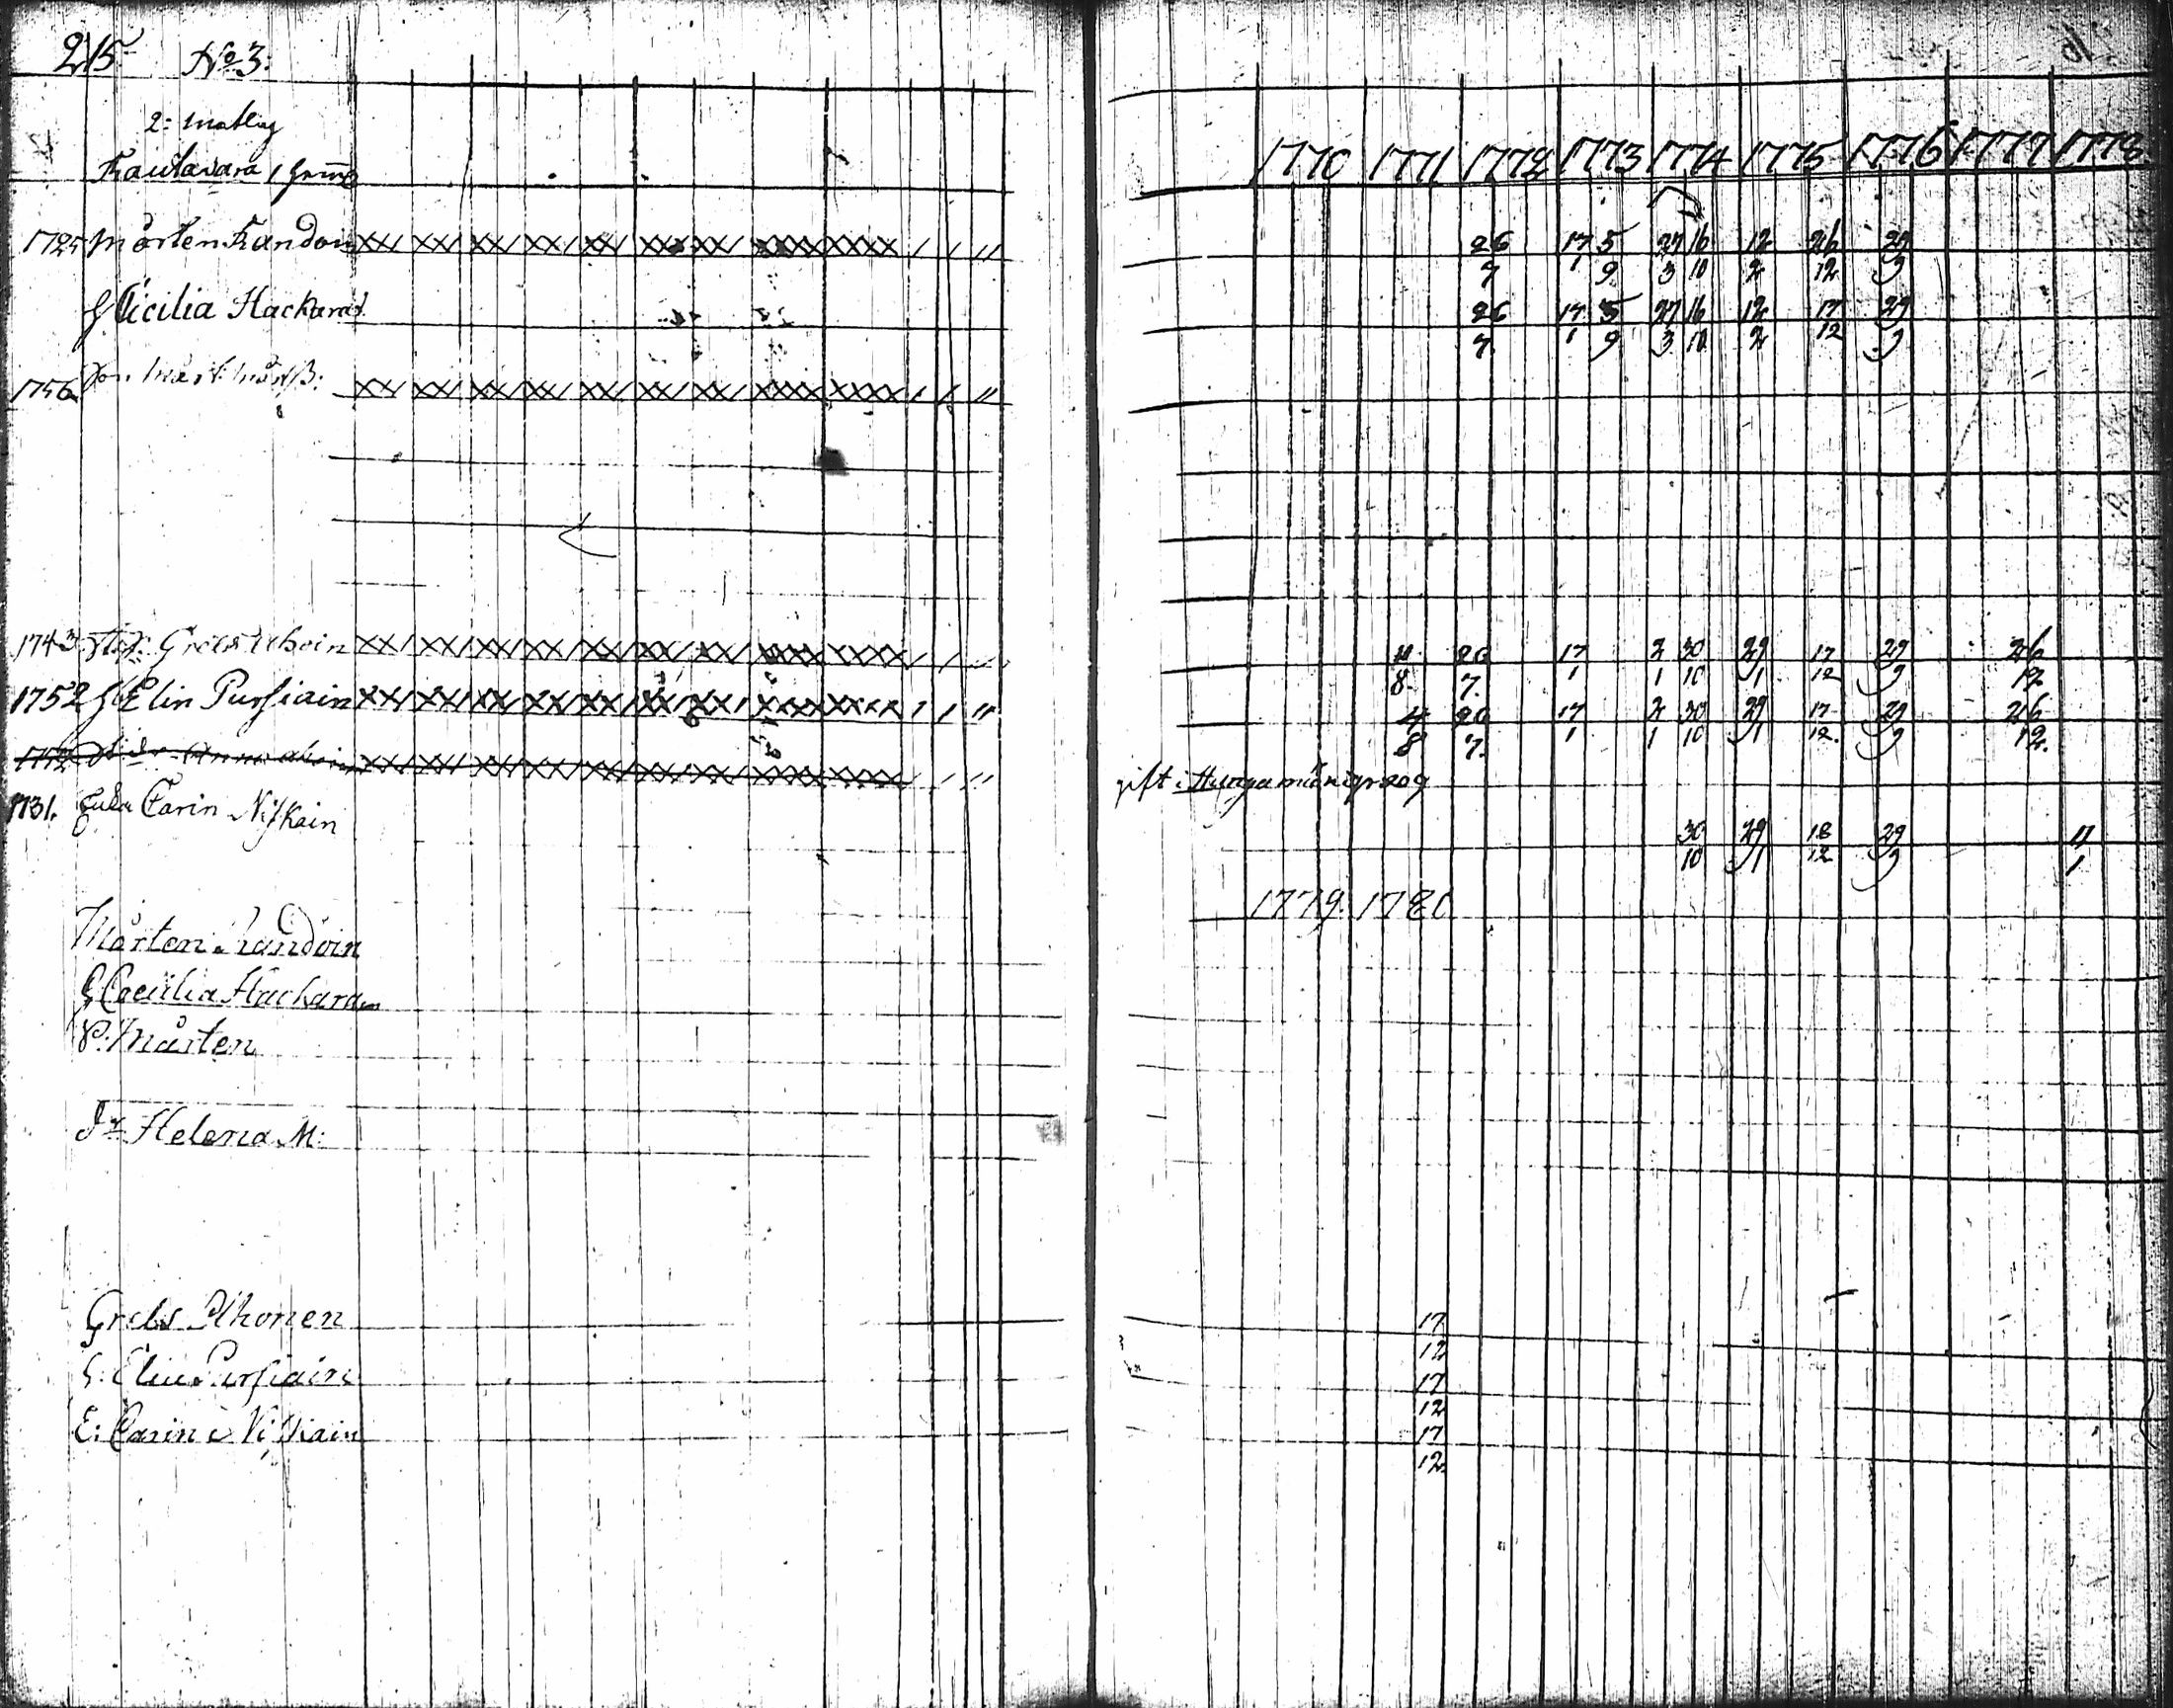 215 No 3.
2: Matlag
Rautavara
1725 Mårten Randoin XX/ XX/ XX/ XX/ XX/ XX/ XX/ XXXX XXXX / / //
h Cicilia Hackarai
1756 Son Mårt: Mårtß: XX/ XX/ XX/ XX/ XX/ XX/ XX/ XXXX XXXX / / //
1743 Grels XX/ XX/ XX/ XX/ XX/ XX/ XX/ XXXX XXXX / /
1752 h Elin Pursiain XX/ XX/ XX/ XX/ XX/ XX/ XX/ XXXX XXXX / / //
XX/ XX/ XX/ XX/ XX/ XX/ XX/ XXXX XXXX / //
1731. Enka Carin
Mårten Randoin
h Cecilia Hackarain
Mårten
Helena M:
Grels Ahonen
h. Elin Pursiain
E: Carin
1770 1771 1772 1773 1774 1775 1776 1777 1778
26 17 5 27 16 12 26 29
7 1 9 3 10 2 12 9
26 17 5 27 16 12 17 29
7 1 9 3 10 2 12 9
4 26 17 2 30 29 17 29 26
8 7. 1 1 10 1 12 9 12
4 26 17 2 30 29 17 29 26
8 7. 1 1 10 1 12. 9 12.
gift i
30 29 18 29 11
10 1 12 9 1
1779. 1780
17
12
17
12
17
12.